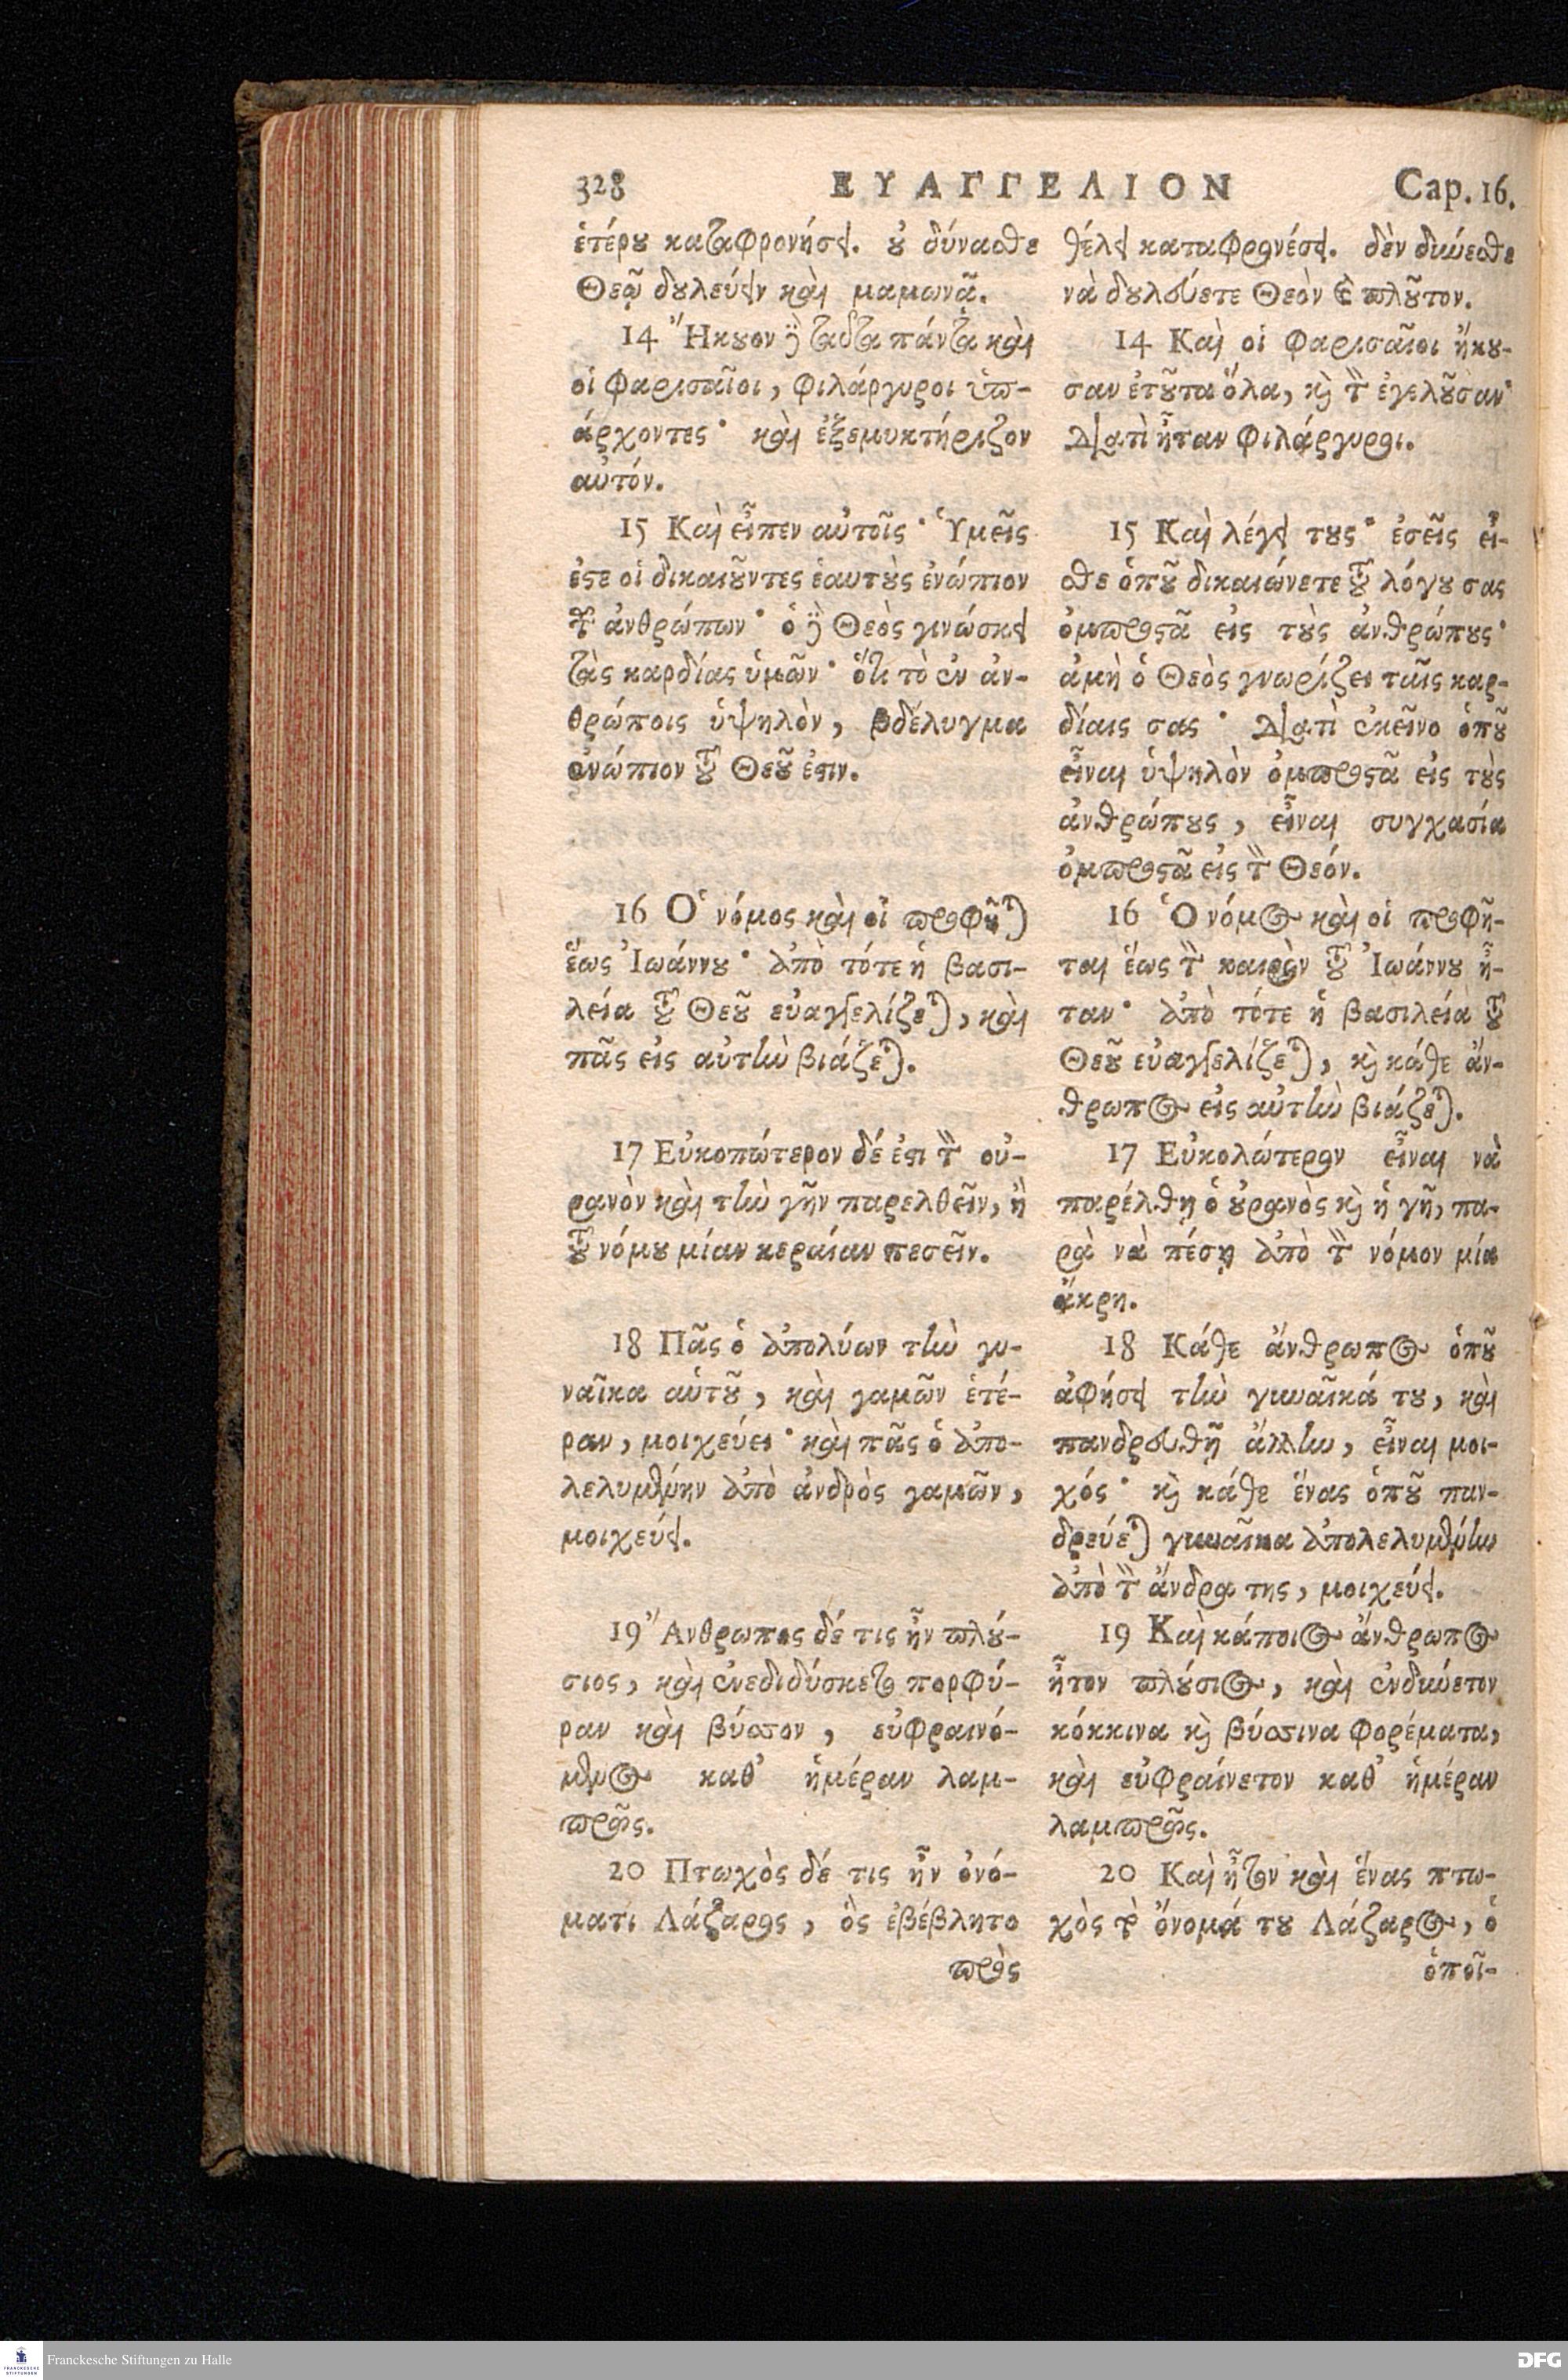 328 ΕΥΑΓΓΕΛΙΟΝ Cap. 16.
ἑτέρȣ καταφρονήσει. ȣ̓ δύναϑε
Θεῷ δȣλεύειν καὶ μαμωνᾶ.
14 Ἤκȣον δὲ ταῦτα πάντα καὶ
οἱ Φαρισαῖοι, φιλάργυροι ὑπ-
άρχοντες· καὶ ἐξεμυκτήριζον
αὐτόν.
15 Καὶ εἶπεν αὐτοῖς· Ὑμεῖς
ἐϛε οἱ δικαιȣ͂ντες ἑαυτȣ̀ς ἐνώπιον
τῶν ἀνθρώπων· ὁ δὲ Θεὸς γινώσκει
τὰς καρδίας ὑμῶν· ὅτι τὸ ἐν ἀν-
θρώποις ὑψηλὸν, βδέλυγμα
ἐνώπιον τȣ͂ Θεȣ͂ ἐϛιν.
16 Ὁ νόμος καὶ οἱ προφῆται
ἕως Ἰωάννȣ· ἀπὸ τότε ἡ βασι-
λεία τȣ͂ Θεȣ͂ εὐαγγελίζεται, καὶ
πᾶς εἰς αὐτὴν βιάζεται.
17 Εὐκοπώτερον δέ ἐϛι τὸν οὐ-
ρανὸν καὶ τὴν γῆν παρελθεῖν, ἢ
τȣ͂ νόμȣ μίαν κεραίαν πεσεῖν.
18 Πᾶς ὁ ἀπολύων τὴν γυ-
ναῖκα αὑτȣ͂, καὶ γαμῶν ἑτέ-
ραν, μοιχεύει· καὶ πᾶς ὁ ἀπο-
λελυμένην ἀπὸ ἀνδρὸς γαμῶν,
μοιχεύει.
19 Ἄνθρωπος δέ τις ἦν πλȣ́-
σιος, καὶ ἐνεδιδύσκετο πορφύ-
ραν καὶ βύσσον, εὐφραινό-
μενος καθ’ ἡμέραν λαμ-
πρῶς.
20 Πτωχὸς δέ τις ἦν ὀνό-
ματι Λάζαρος, ὃς ἐβέβλητο
πρὸς
θέλει καταφρονέσει. δὲν δύνεϑε
νὰ δȣλεύετε Θεὸν καὶ πλȣ͂τον.
14 Καὶ οἱ Φαρισαῖοι ἤκȣ-
σαν ἐτȣ͂τα ὅλα, καὶ τὸν ἐγελȣ͂σαν·
διατὶ ἦταν φιλάργυροι.
15 Καὶ λέγει τȣς· ἐσεῖς εἶ-
ϑε ὁπȣ͂ δικαιώνετε τȣ͂ λόγȣ σας
ὀμπροϛᾶ εἰς τȣ̀ς ἀνθρώπȣς·
ἀμὴ ὁ Θεὸς γνωρίζει ταῖς καρ-
δίαις σας· διατὶ ἐκεῖνο ὁπȣ͂
εἶναι ὑψηλὸν ὀμπροϛᾶ εἰς τȣ̀ς
ἀνθρώπȣς, εἶναι συγχασία
ὀμπροϛᾶ εἰς τὸν Θεόν.
16 Ὁ νόμος καὶ οἱ προφῆ-
ται ἕως τὸν καιρὸν τȣ͂ Ἰωάννȣ ἦ-
ταν· ἀπὸ τότε ἡ βασιλεία τȣ͂
Θεȣ͂ εὐαγγελίζεται, καὶ κάθε ἄν-
θρωπος εἰς αὐτὴν βιάζεται.
17 Εὐκολώτερον εἶναι νὰ
παρέλθῃ ὁ ȣ̓ρανὸς καὶ ἡ γῆ, πα-
ρὰ νὰ πέσῃ ἀπὸ τὸν νόμον μία
ἄκρη.
18 Κάθε ἄνθρωπος ὁπȣ͂
ἀφήσει τὴν γυναῖκά τȣ, καὶ
πανδρευθῇ ἄλλην, εἶναι μοι-
χός· καὶ κάθε ἕνας ὁπȣ͂ παν-
δρεύεται γυναῖκα ἀπολελυμένην
ἀπὸ τὸν ἄνδρα της, μοιχεύει.
19 Καὶ κάποιος ἄνθρωπος
ἦτον πλȣ́σιος, καὶ ἐνδύνετον
κόκκινα καὶ βύσσινα φορέματα,
καὶ εὐφραίνετον καθ’ ἡμέραν
λαμπρῶς.
20 Καὶ ἦτον καὶ ἕνας πτω-
χὸς τὸ ὄνομά τȣ Λάζαρος, ὁ
ὁποῖ-
Franckesche Stiftungen zu Halle
DFG